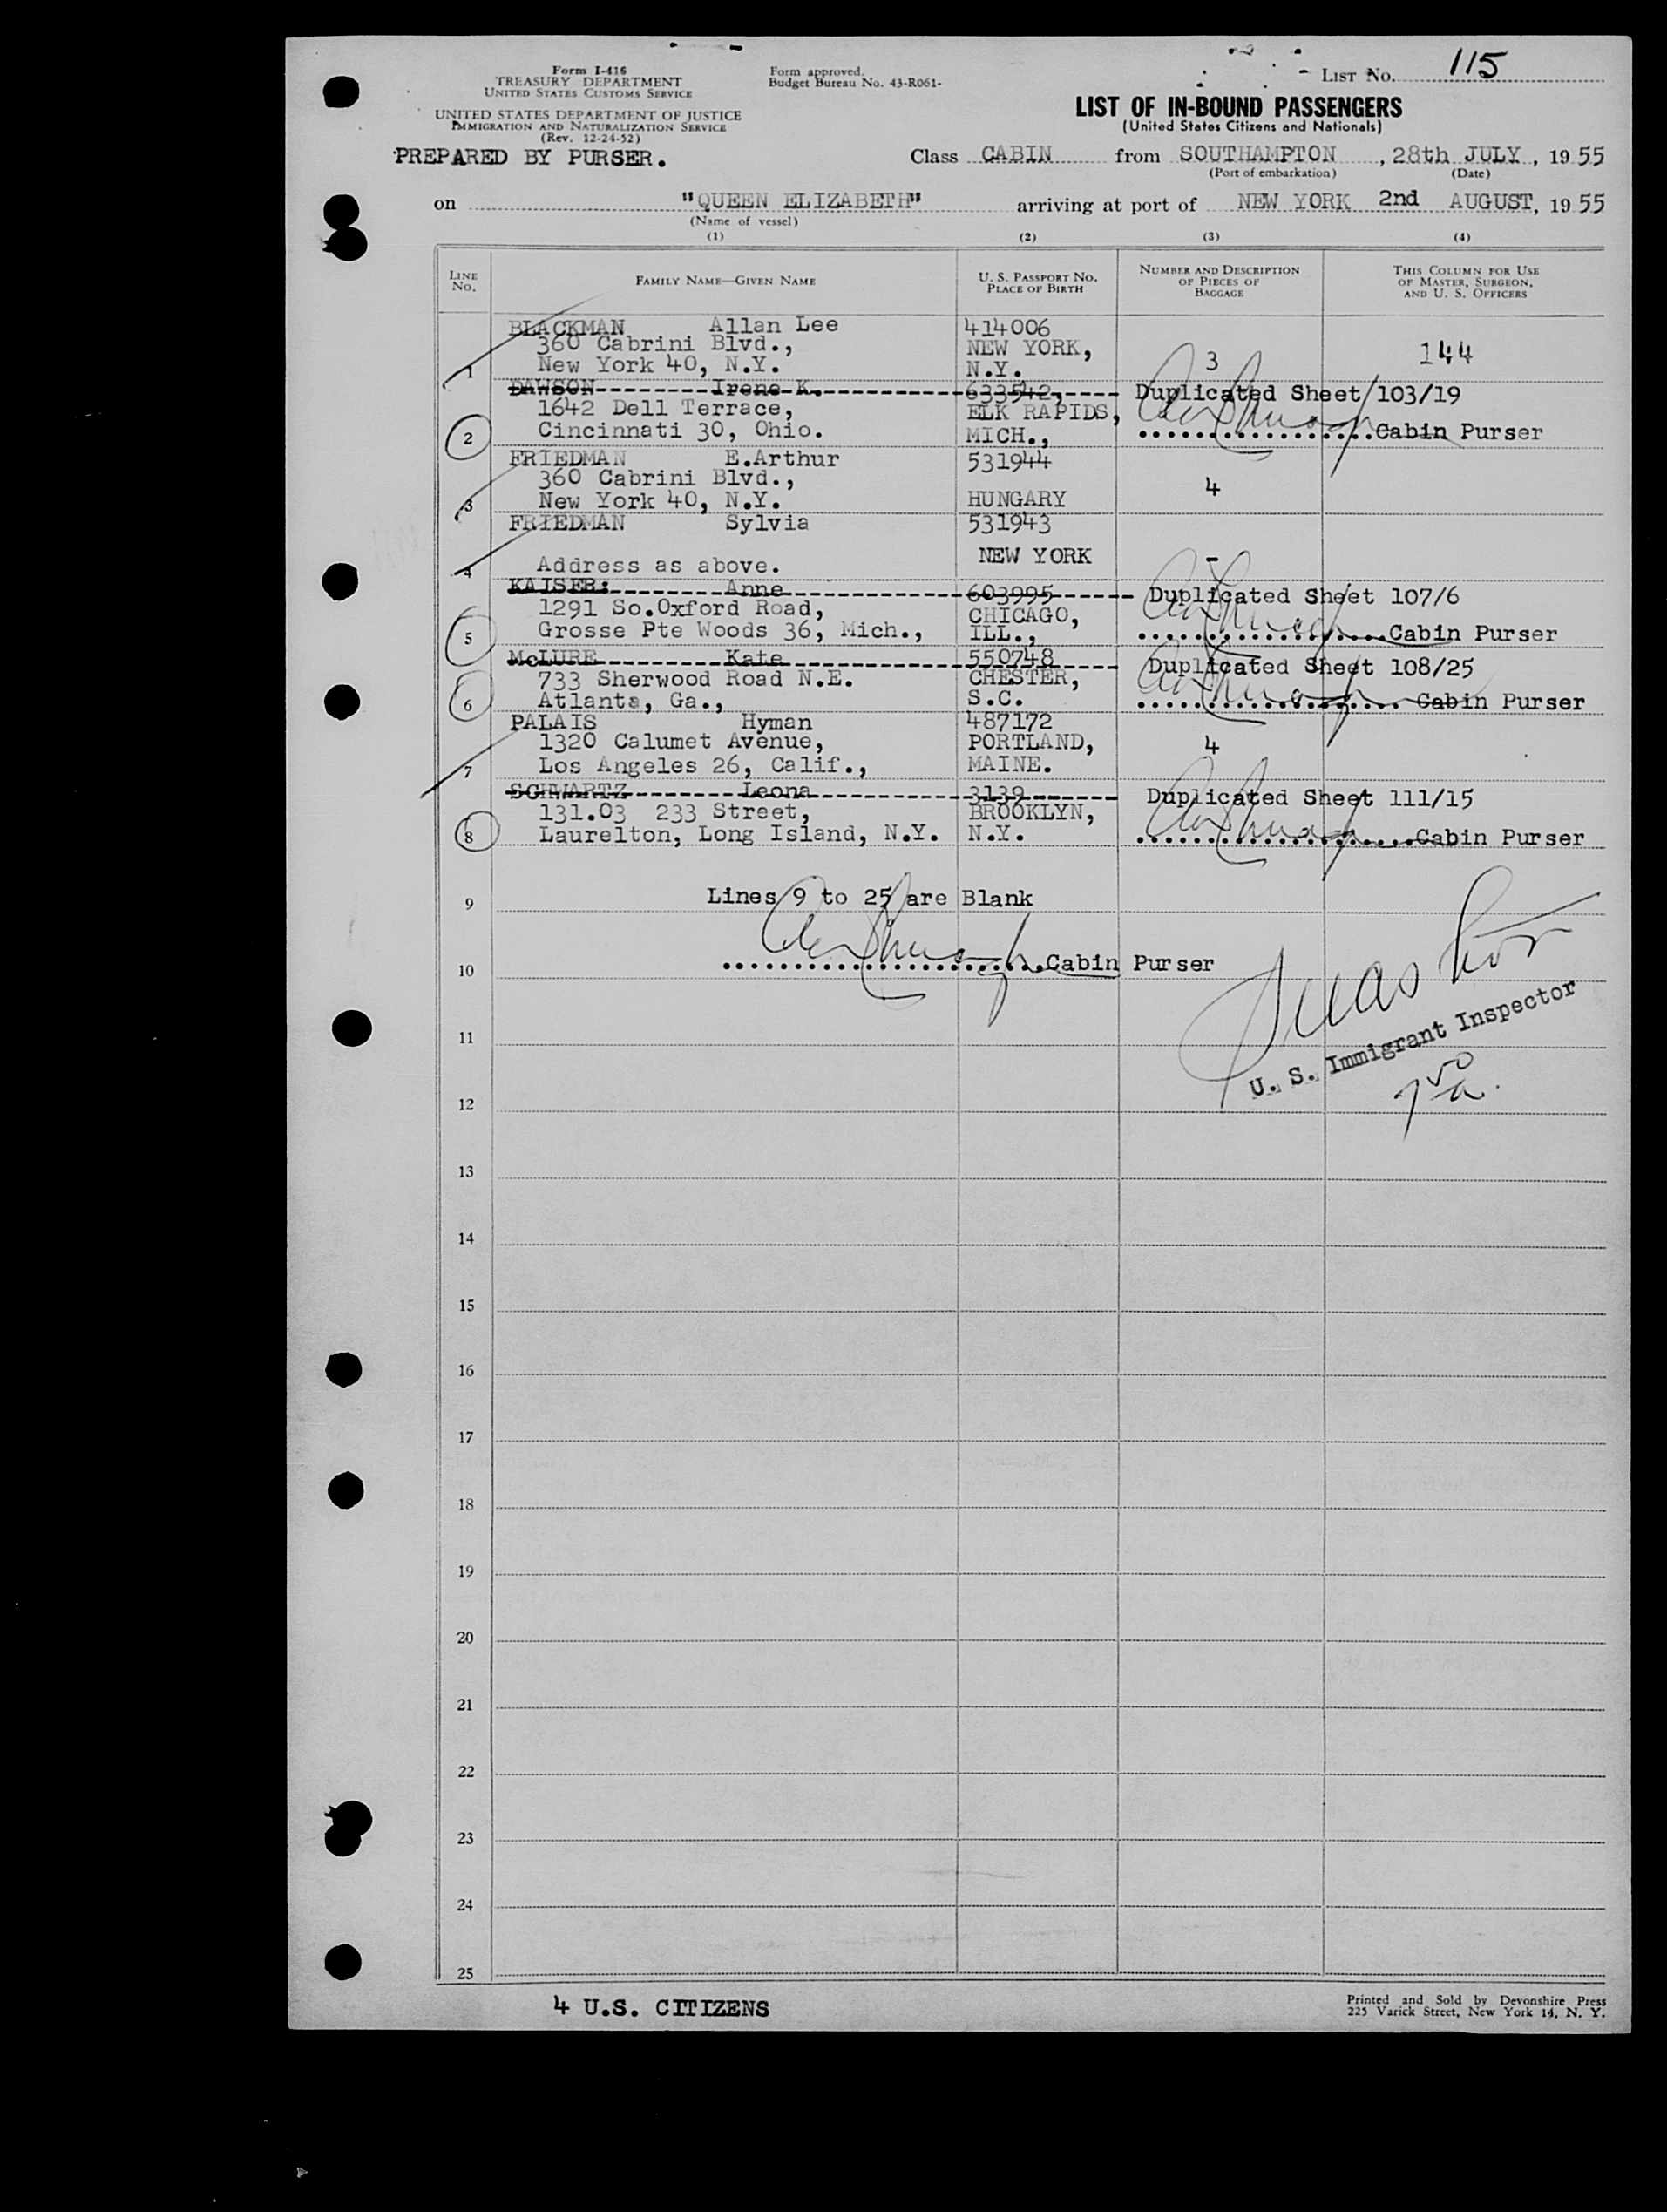 Form I-416
TREASURY DEPARTMENT
UNITED STATES CUSTOMS SERVICE
UNITED STATES DEPARTMENT OF JUSTICE
IMMIGRATION AND NATURALIZATION SERVICE
(Rev. 12-24-52)
PREPARED BY PURSER.
Form approved.
Budget Bureau No. 43-R061-
LIST No. 115
LIST OF IN-BOUND PASSENGERS
(United States Citizens and Nationals)
Class CABIN from SOUTHAMPTON, 28th JULY, 1955
(Port of embarkation) (Date)
on "QUEEN ELIZABETH" arriving at port of NEW YORK 2nd AUGUST, 1955
(Name of vessel)
(1) (2) (3) (4)
LINE No. FAMILY NAME—GIVEN NAME U. S. PASSPORT NO. PLACE OF BIRTH NUMBER AND DESCRIPTION OF PIECES OF BAGGAGE THIS COLUMN FOR USE OF MASTER, SURGEON, AND U. S. OFFICERS
BLACKMAN Allan Lee 414006
360 Cabrini Blvd., NEW YORK,
1 New York 40, N.Y. N.Y. 3 144
DAWSON Irene K. 633542, Duplicated Sheet 103/19
1642 Dell Terrace, ELK RAPIDS,
2 Cincinnati 30, Ohio. MICH., Cabin Purser
FRIEDMAN E.Arthur 531944
360 Cabrini Blvd., 4
3 New York 40, N.Y. HUNGARY
FRIEDMAN Sylvia 531943
NEW YORK -
4 Address as above.
KAISER: Anne 603995 Duplicated Sheet 107/6
1291 So.Oxford Road, CHICAGO,
5 Grosse Pte Woods 36, Mich., ILL., Cabin Purser
McLURE Kate 550748 Duplicated Sheet 108/25
733 Sherwood Road N.E. CHESTER,
6 Atlanta, Ga., S.C. Cabin Purser
PALAIS Hyman 487172
1320 Calumet Avenue, PORTLAND, 4
7 Los Angeles 26, Calif., MAINE.
SCHWARTZ Leona 3139 Duplicated Sheet 111/15
131.03 233 Street, BROOKLYN,
8 Laurelton, Long Island, N.Y. N.Y. Cabin Purser
9 Lines 9 to 25 are Blank
10 Cabin Purser
11
U. S. Immigrant Inspector
12
13
14
15
16
17
18
19
20
21
22
23
24
25
4 U.S. CITIZENS
Printed and Sold by Devonshire Press
225 Varick Street, New York 14, N. Y.